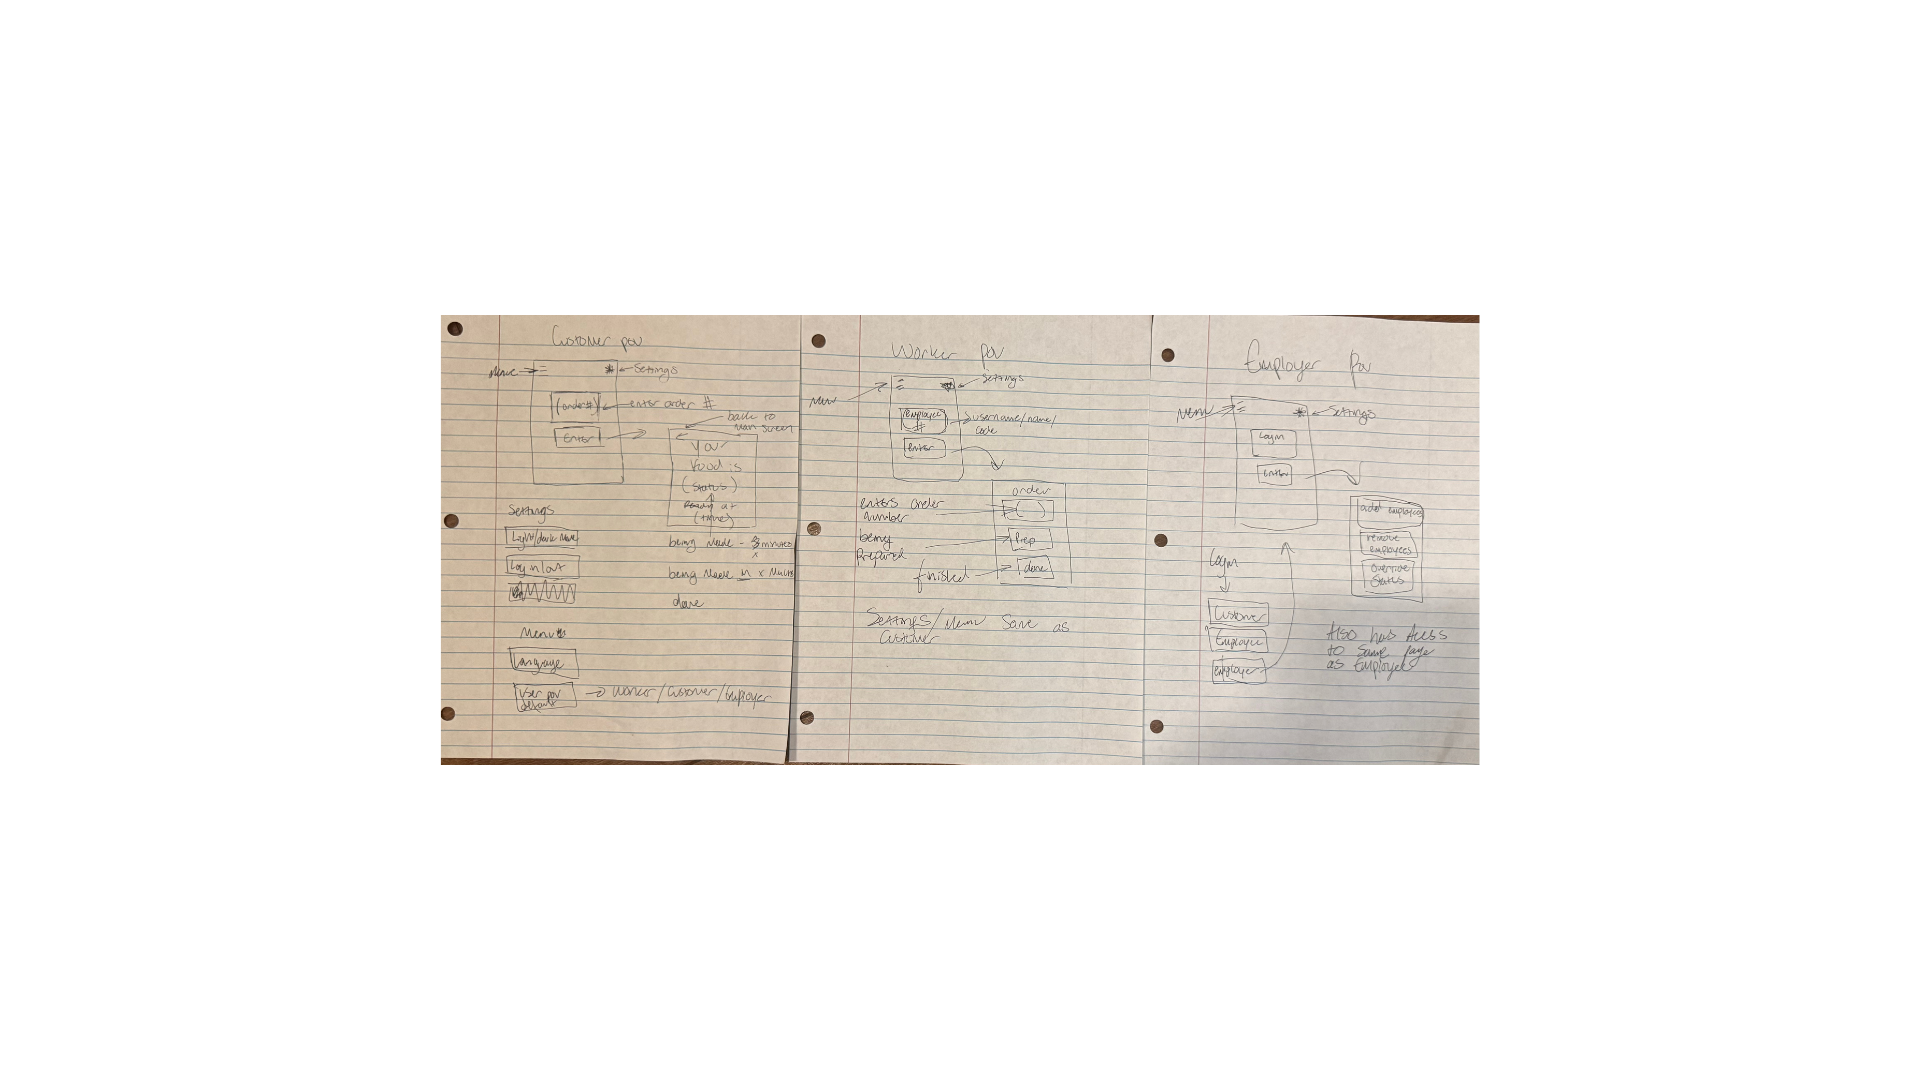 Customer pov
Menu
Settings
(order#)
enter order #
Enter
back to
main screen
Your
food is
(status)
ready at
(time)
Settings
Light/dark mode
Log in/out
being Made - 3 minutes
x
being Made in x Minutes
done
Menu
Language
User pov
default
→ Worker/Customer/Employer
Worker pov
Menu
Settings
employee
#
username/name/
code
enter
order
enters order
number
( )
being
Prepared
Prep
finished
done
Settings/Menu Same as
Customer
Employer Pov
Menu
Settings
Login
enter
add employees
remove
employees
override
Status
Login
Customer
Employee
employer
Also has Access
to same page
as Employees